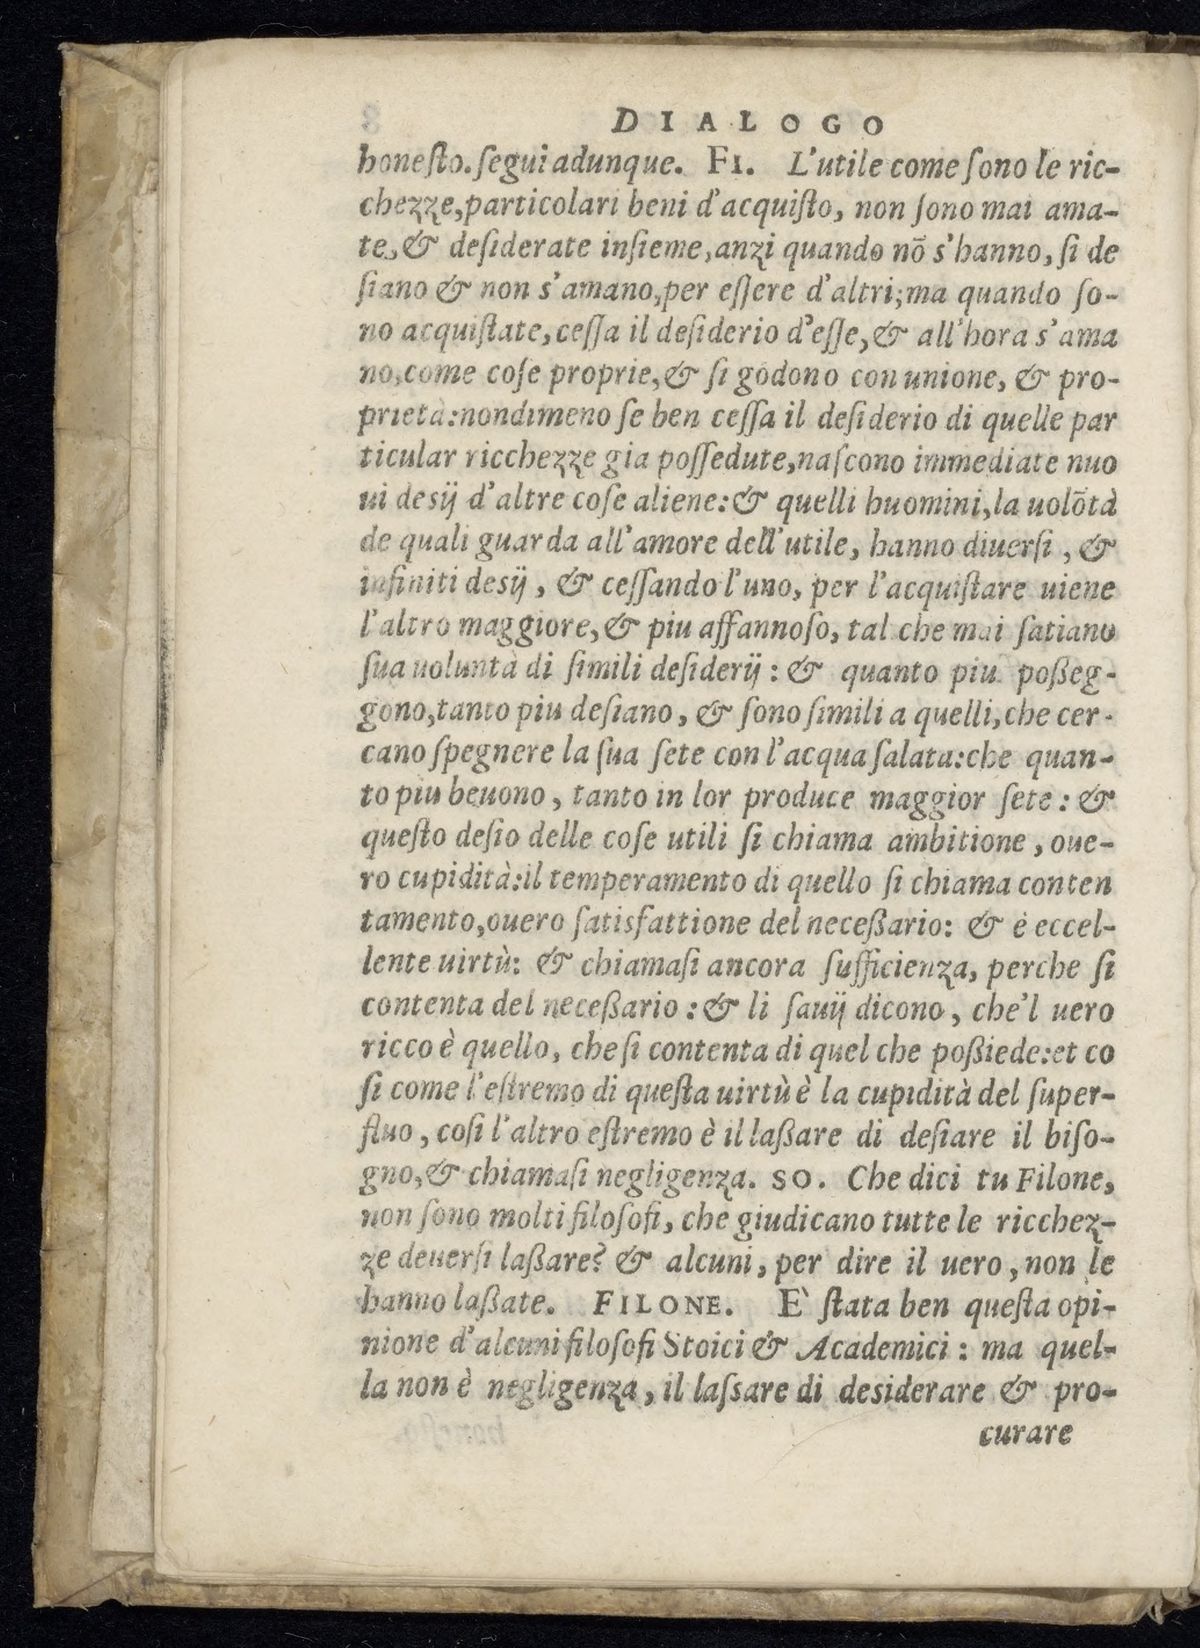 DIALOGO
honeſto. ſegui adunque. FI. L'utile come ſono le ric-
chezze, particolari beni d'acquiſto, non ſono mai ama-
te, & deſiderate inſieme, anzi quando nō s'hanno, ſi de
ſiano & non s'amano, per eſſere d'altri; ma quando ſo-
no acquiſtate, ceſſa il deſiderio d'eſſe, & all'hora s'ama
no, come coſe proprie, & ſi godono con unione, & pro-
prietà: nondimeno ſe ben ceſſa il deſiderio di quelle par
ticular ricchezze gia poſſedute, naſcono immediate nuo
ui desij d'altre coſe aliene: & quelli huomini, la uolōtà
de quali guarda all'amore dell'utile, hanno diuerſi, &
infiniti desij, & ceſſando l'uno, per l'acquiſtare uiene
l'altro maggiore, & piu affannoſo, tal che mai ſatiano
ſua uoluntà di ſimili deſiderij: & quanto piu poßeg-
gono, tanto piu deſiano, & ſono ſimili a quelli, che cer-
cano ſpegnere la ſua ſete con l'acqua ſalata: che quan-
to piu beuono, tanto in lor produce maggior ſete: &
queſto deſio delle coſe utili ſi chiama ambitione, oue-
ro cupidità: il temperamento di quello ſi chiama conten
tamento, ouero ſatisfattione del neceßario: & è eccel-
lente uirtù: & chiamaſi ancora ſufficienza, perche ſi
contenta del neceßario: & li ſauij dicono, che'l uero
ricco è quello, che ſi contenta di quel che poßiede: et co
ſi come l'eſtremo di queſta uirtù è la cupidità del ſuper-
fluo, coſi l'altro eſtremo è il laßare di deſiare il biſo-
gno, & chiamaſi negligenza. SO. Che dici tu Filone,
non ſono molti filoſofi, che giudicano tutte le ricchez-
ze deuerſi laßare? & alcuni, per dire il uero, non le
hanno laßate. FILONE. È ſtata ben queſta opi-
nione d'alcuni filoſofi Stoici & Academici: ma quel-
la non è negligenza, il laſsare di desiderare & pro-
curare